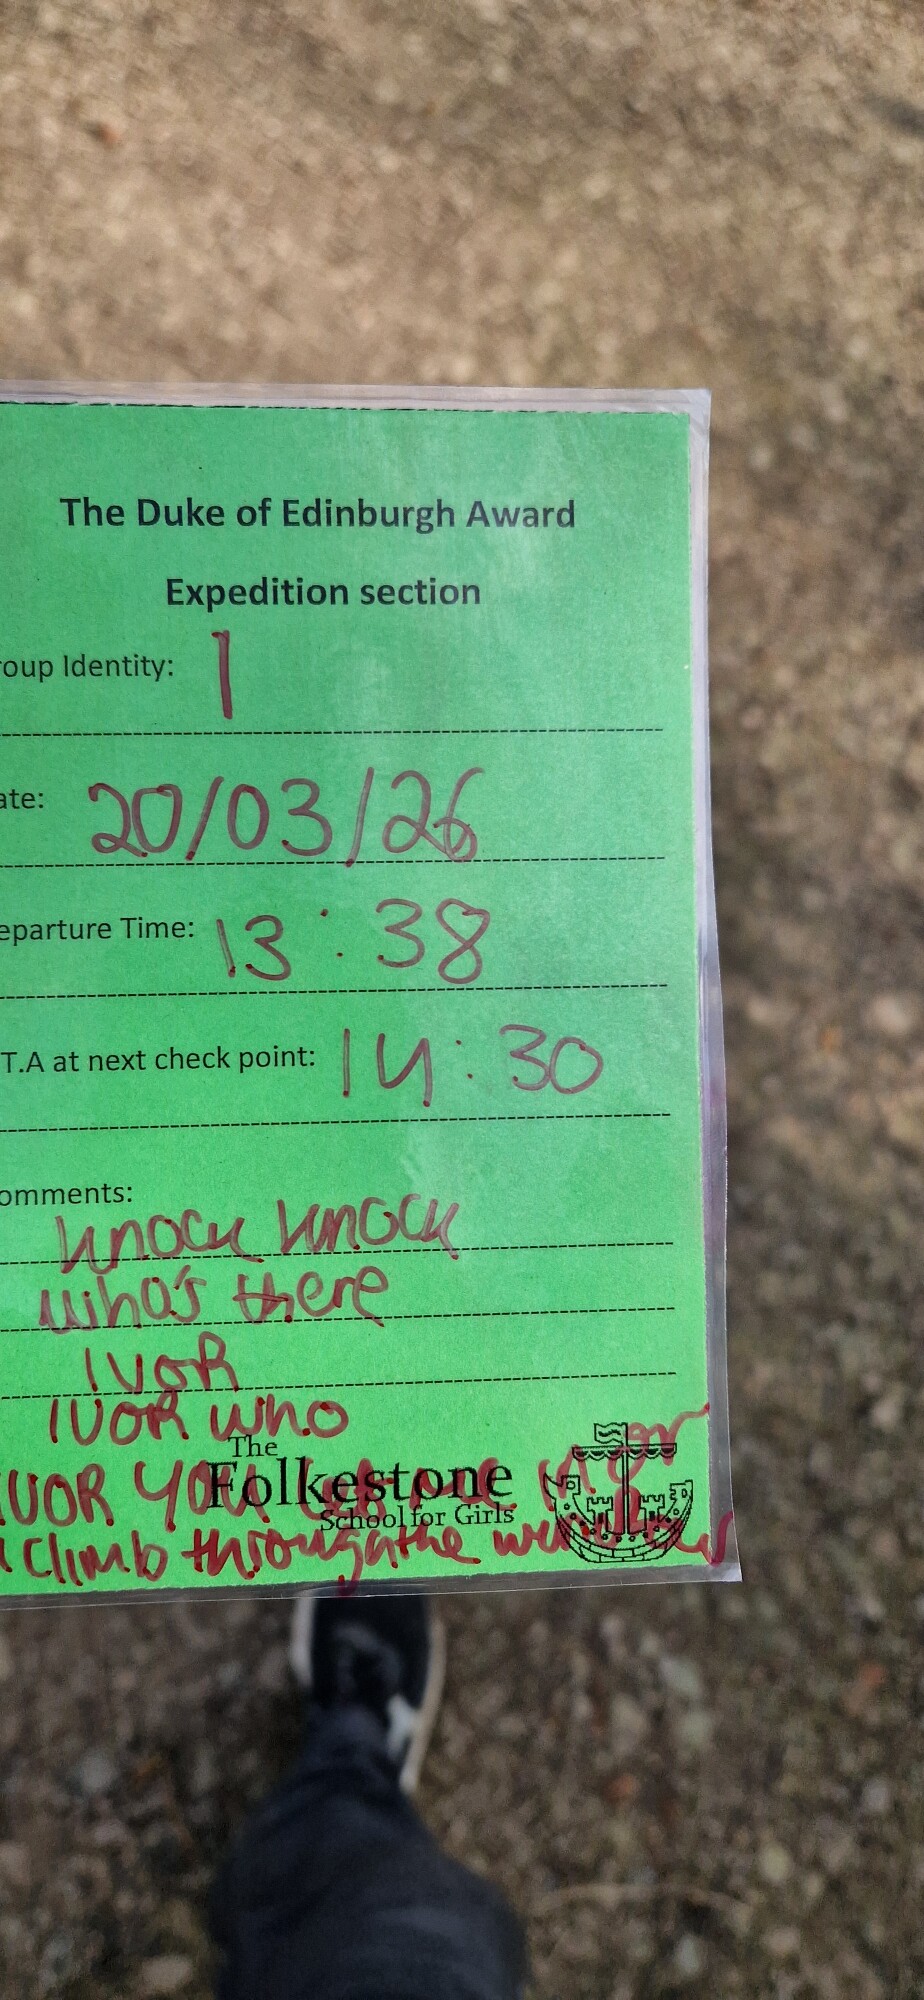 The Duke of Edinburgh Award
Expedition section
roup Identity: 1
ate: 20/03/26
eparture Time: 13:38
.T.A at next check point: 14:30
omments:
knock knock
who's there
IVOR
IVOR who
IVOR YOU let me in or
I climb through the window
The
Folkestone
School for Girls